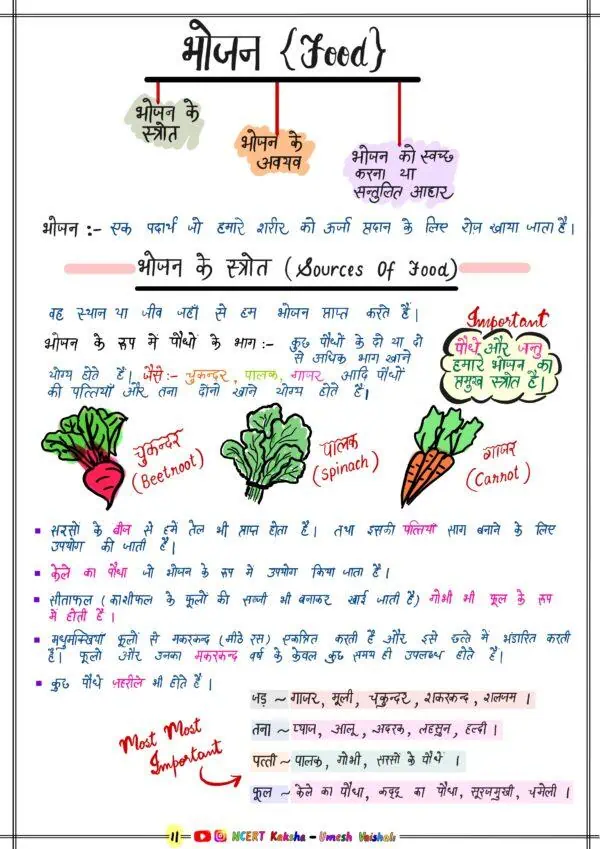 भोजन {Food}
भोजन के
स्त्रोत
भोजन के
अवयव
भोजन को स्वच्छ
करना या
सन्तुलित आहार
भोजन :- एक पदार्थ जो हमारे शरीर को ऊर्जा प्रदान के लिए रोज खाया जाता है।
भोजन के स्त्रोत (Sources Of Food)
वह स्थान या जीव जहाँ से हम भोजन प्राप्त करते हैं।
भोजन के रूप में पौधों के भाग :- कुछ पौधों के दो या दो
से अधिक भाग खाने
योग्य होते हैं। जैसे :- चुकन्दर, पालक, गाजर आदि पौधों
की पत्तियाँ और तना दोनो खाने योग्य होते हैं।
Important
पौधे और जन्तु
हमारे भोजन का
प्रमुख स्त्रोत है।
चुकन्दर
(Beetroot)
पालक
(Spinach)
गाजर
(Carrot)
▪ सरसों के बीज से हमें तेल भी प्राप्त होता है। तथा इसकी पत्तियाँ साग बनाने के लिए
उपयोग की जाती है।
▪ केले का पौधा जो भोजन के रूप में उपयोग किया जाता है।
▪ सीताफल (काशीफल के फूलों की सब्जी भी बनाकर खाई जाती है) गोभी भी फूल के रूप
में होती है।
▪ मधुमक्खियाँ फूलों से मकरकन्द (मीठे रस) एकत्रित करती हैं और इसे छत्ते में भंडारित करती
हैं। फूलों और उनका मकरकन्द वर्ष के केवल कुछ समय ही उपलब्ध होते हैं।
▪ कुछ पौधे जहरीले भी होते हैं।
Most Most
Important
जड़ ~ गाजर, मूली, चकुन्दर, शकरकन्द, शलजम।
तना ~ प्याज, आलू, अदरक, लहसुन, हल्दी।
पत्ती ~ पालक, गोभी, सरसों के पौधे।
फूल ~ केले का पौधा, कद्दू का पौधा, सूरजमुखी, चमेली।
11 NCERT Kaksha - Umesh Vaishali